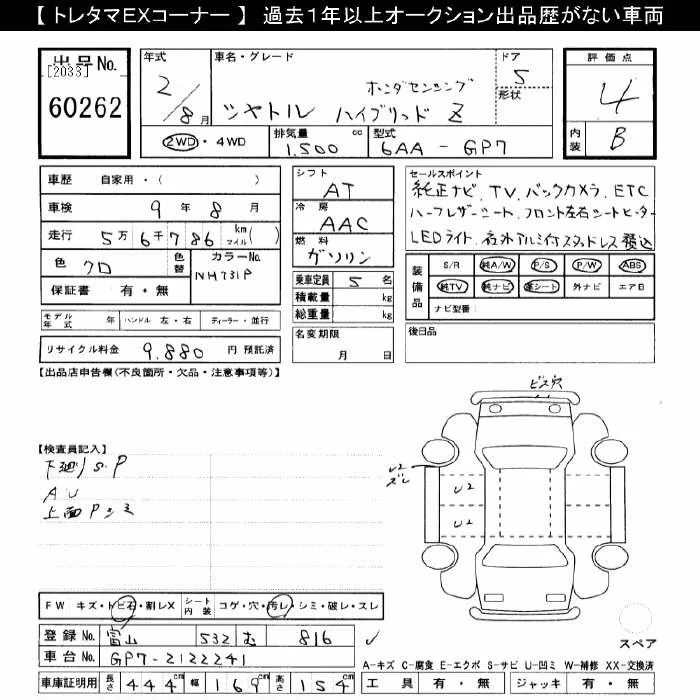 【 トレタマEXコーナー 】 過去1年以上オークション出品歴がない車両
出品No. [2033] 60262
年式 2/8月
車名・グレード シャトル ハイブリッド Z ホンダセンシング
ドア 5 形状
評価点 4
内装 B
2WD・4WD 排気量 1,500 cc 型式 6AA-GP7
車歴 自家用・( )
車検 9年 8月
走行 5万6千786 km(マイル)( )
色 クロ 色替 カラーNo. NH731P
保証書 有・無
シフト AT
冷房 AAC
燃料 ガソリン
乗車定員 5名
積載量 kg
総重量 kg
セールスポイント
純正ナビ、TV、バックカメラ、ETC
ハーフレザーシート、フロント左右シートヒーター
LEDライト、社外アルミ付スタッドレス積込
装備品 S/R 純A/W P/S P/W ABS
純TV 純ナビ 革シート 外ナビ エアB
ナビ型番:
モデル年式 年 ハンドル 左・右 ディーラー・並行
名変期限 月 日
後日品
リサイクル料金 9,880 円 預託済
【出品店申告欄(不良箇所・欠品・注意事項等)】
ビス穴
【検査員記入】
下廻りS.P
AU
上面Pシミ
U2
ズレ
U2
U2
FW キズ・トビ石・割レX シート内装 コゲ・穴・汚レ・シミ・破レ・スレ
登録No. 富山 532 む 816
車台No. GP7-2122241
スペア
A-キズ C-腐食 E-エクボ S-サビ U-凹ミ W-補修 XX-交換済
車庫証明用 長さ 444cm 幅 169cm 高さ 154cm
工具 有・無 ジャッキ 有・無